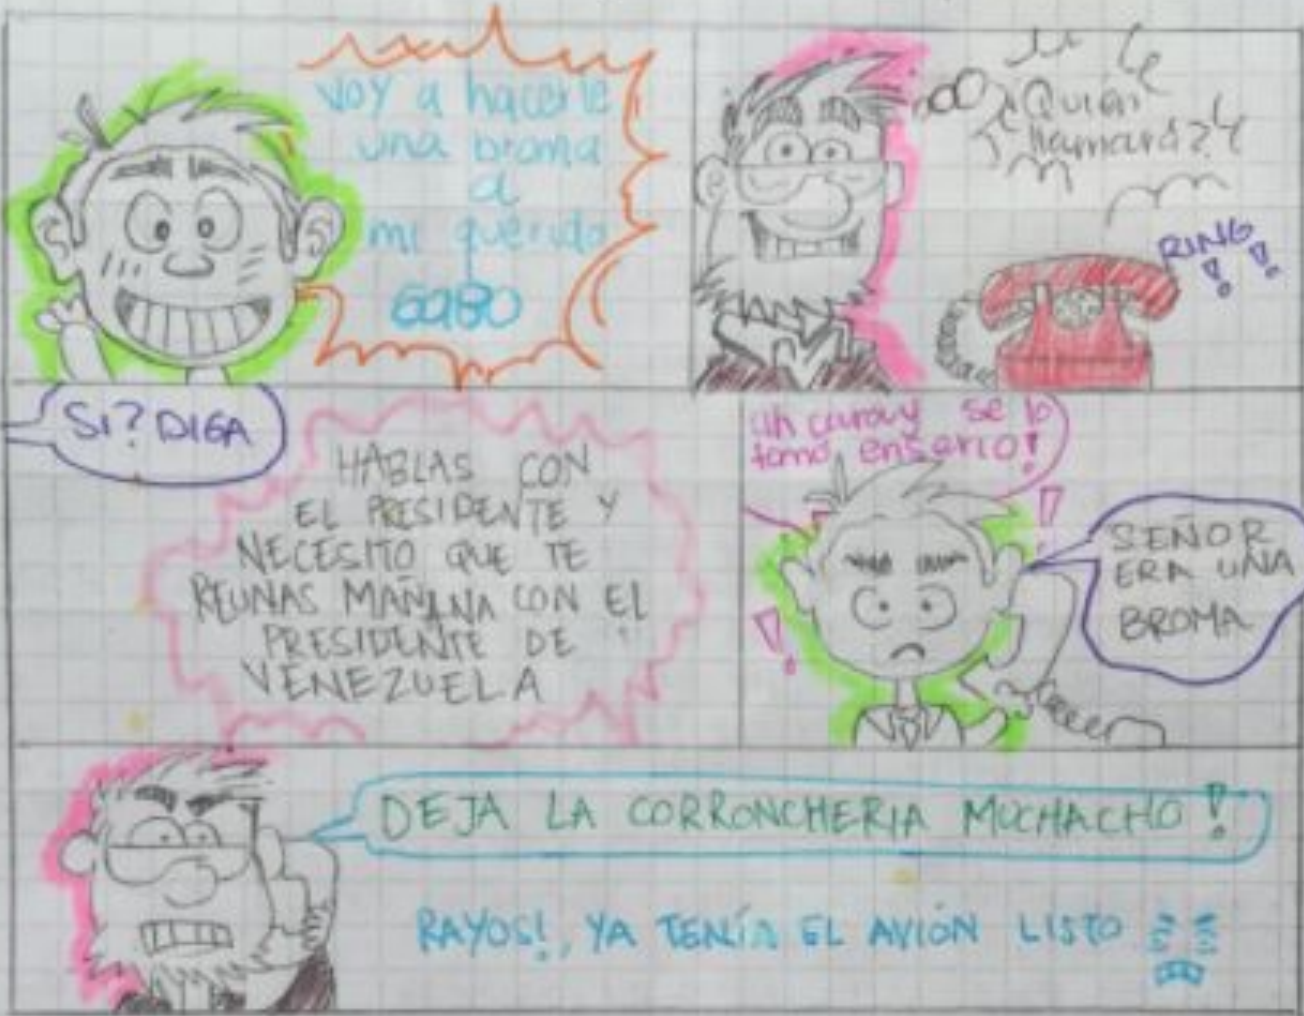 voy a hacerle
una broma
a
mi querido
GABO
Quien
llamará?
RING!!
SI? DIGA
HABLAS CON
EL PRESIDENTE Y
NECESITO QUE TE
REUNAS MAÑANA CON EL
PRESIDENTE DE
VENEZUELA
Uh caray se lo
tomó enserio!
SEÑOR
ERA UNA
BROMA
DEJA LA CORRONCHERIA MUCHACHO!
RAYOS!, YA TENÍA EL AVIÓN LISTO